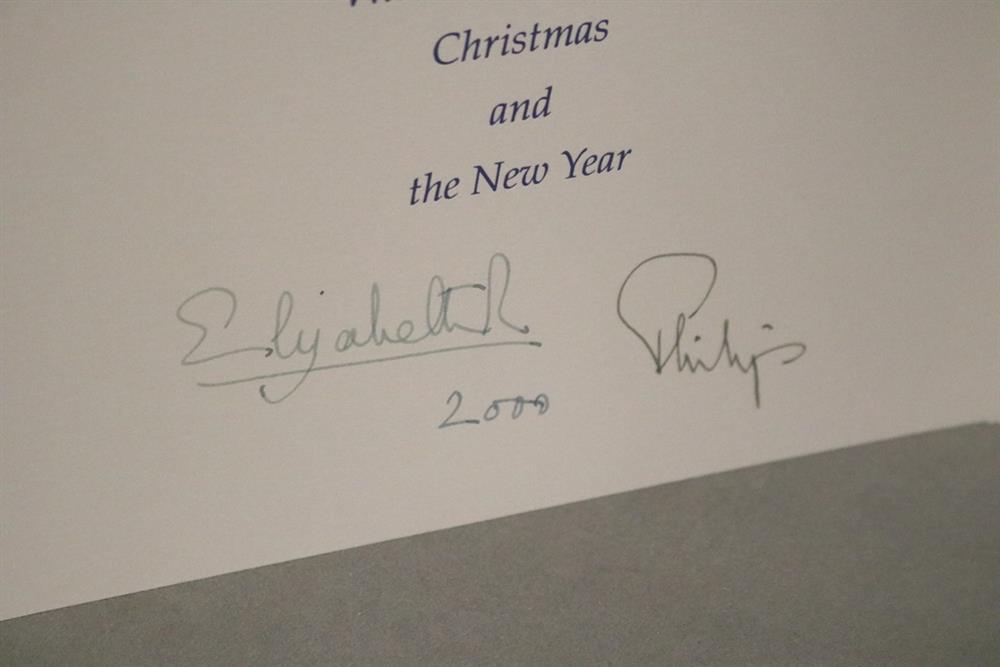 Christmas
and
the New Year
Elizabeth R Philip
2000